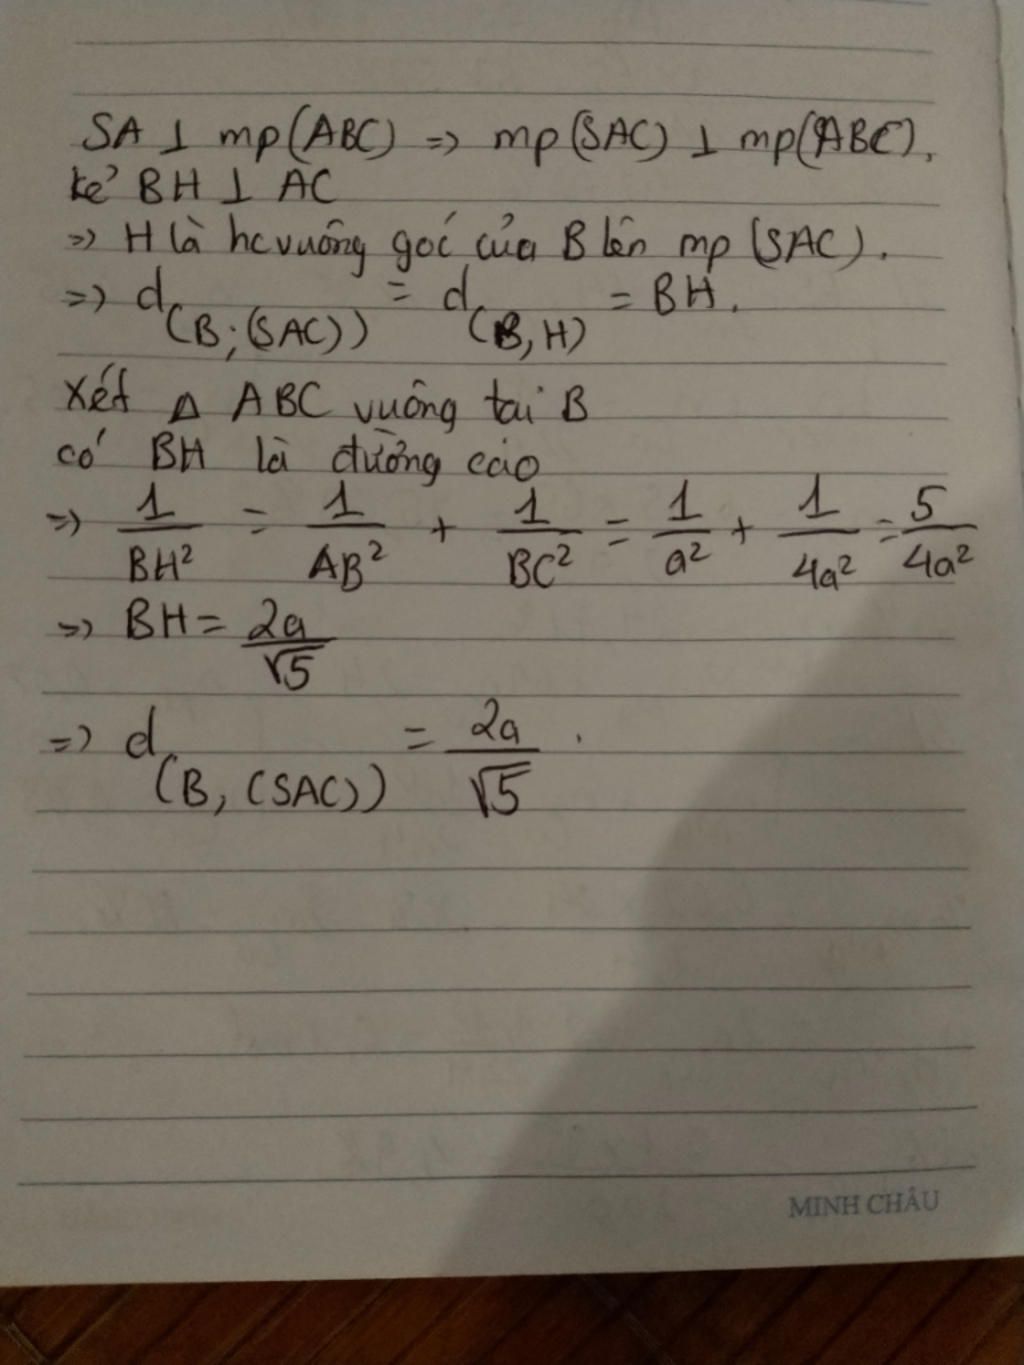 SA ⊥ mp(ABC) => mp(SAC) ⊥ mp(ABC).
kẻ BH ⊥ AC
=> H là hc vuông góc của B lên mp (SAC).
=> d(B;(SAC)) = d(B,H) = BH.
Xét Δ ABC vuông tại B
có BH là đường cao
=> 1/BH² = 1/AB² + 1/BC² = 1/a² + 1/4a² = 5/4a²
=> BH = 2a/√5
=> d(B,(SAC)) = 2a/√5 .
MINH CHÂU